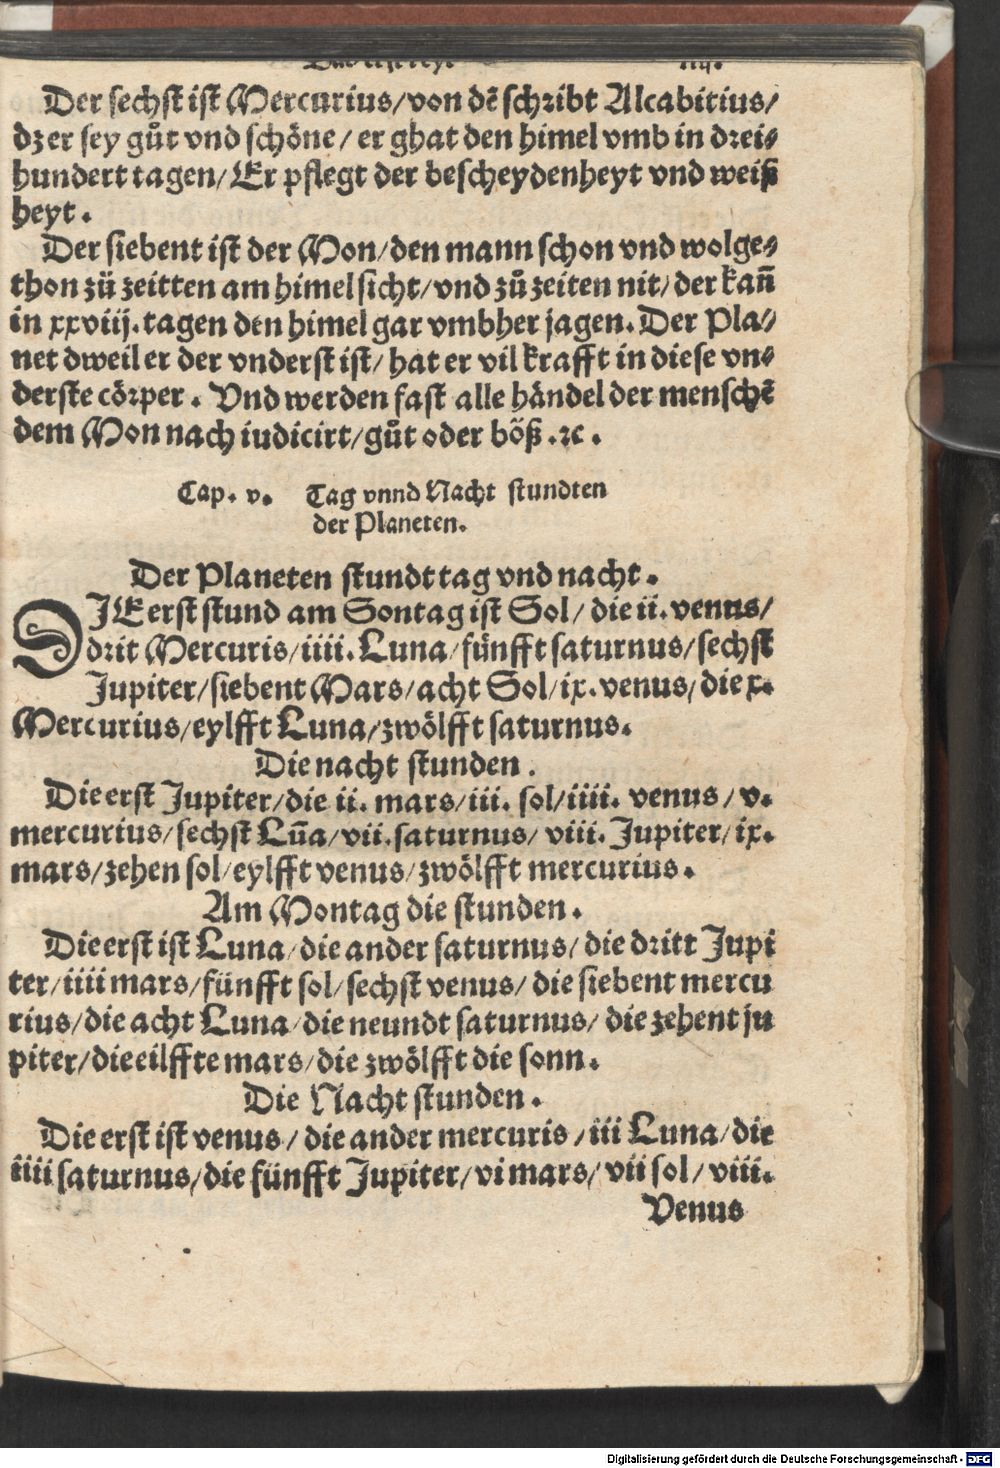 Der sechst ist Mercurius/von dē schribt Alcabitius/
dz er sey gůt vnd schöne/ er ghat den himel vmb in drei-
hundert tagen/ Er pflegt der bescheydenheyt vnd weiß
heyt.
Der siebent ist der Mon/den mann schon vnd wolge-
thon zů zeitten am himel sicht/vnd zů zeiten nit/ der kañ
in xxviij. tagen den himel gar vmbher jagen. Der Pla-
net dweil er der vnderst ist/ hat er vil krafft in diese vn-
derste cörper. Vnd werden fast alle händel der menschē
dem Mon nach iudicirt/gůt oder böß.ꝛc.
Cap. v. Tag vnnd Nacht stundten
der Planeten.
Der Planeten stundt tag vnd nacht.
DIE erst stund am Sontag ist Sol/ die ii. venus/
drit Mercuris/iiii. Luna/fünfft saturnus/sechst
Jupiter/siebent Mars/acht Sol/ix. venus/ die x.
Mercurius/eylfft Luna/zwölfft saturnus.
Die nacht stunden.
Die erst Jupiter/die ii. mars/iii. sol/iiii. venus/ v.
mercurius/sechst Lūa/vii.saturnus/ viii. Jupiter/ix.
mars/zehen sol/eylfft venus/zwölfft mercurius.
Am Montag die stunden.
Die erst ist Luna/die ander saturnus/ die dritt Jupi
ter/iiii mars/fünfft sol/sechst venus/ die siebent mercu
rius/die acht Luna/die neundt saturnus/ die zehent ju
piter/die eilffte mars/die zwölfft die sonn.
Die Nacht stunden.
Die erst ist venus/ die ander mercuris/iii Luna/die
iiii saturnus/die fünfft Jupiter/vi mars/vii sol/viii.
Venus
Digitalisierung gefördert durch die Deutsche Forschungsgemeinschaft - DFG